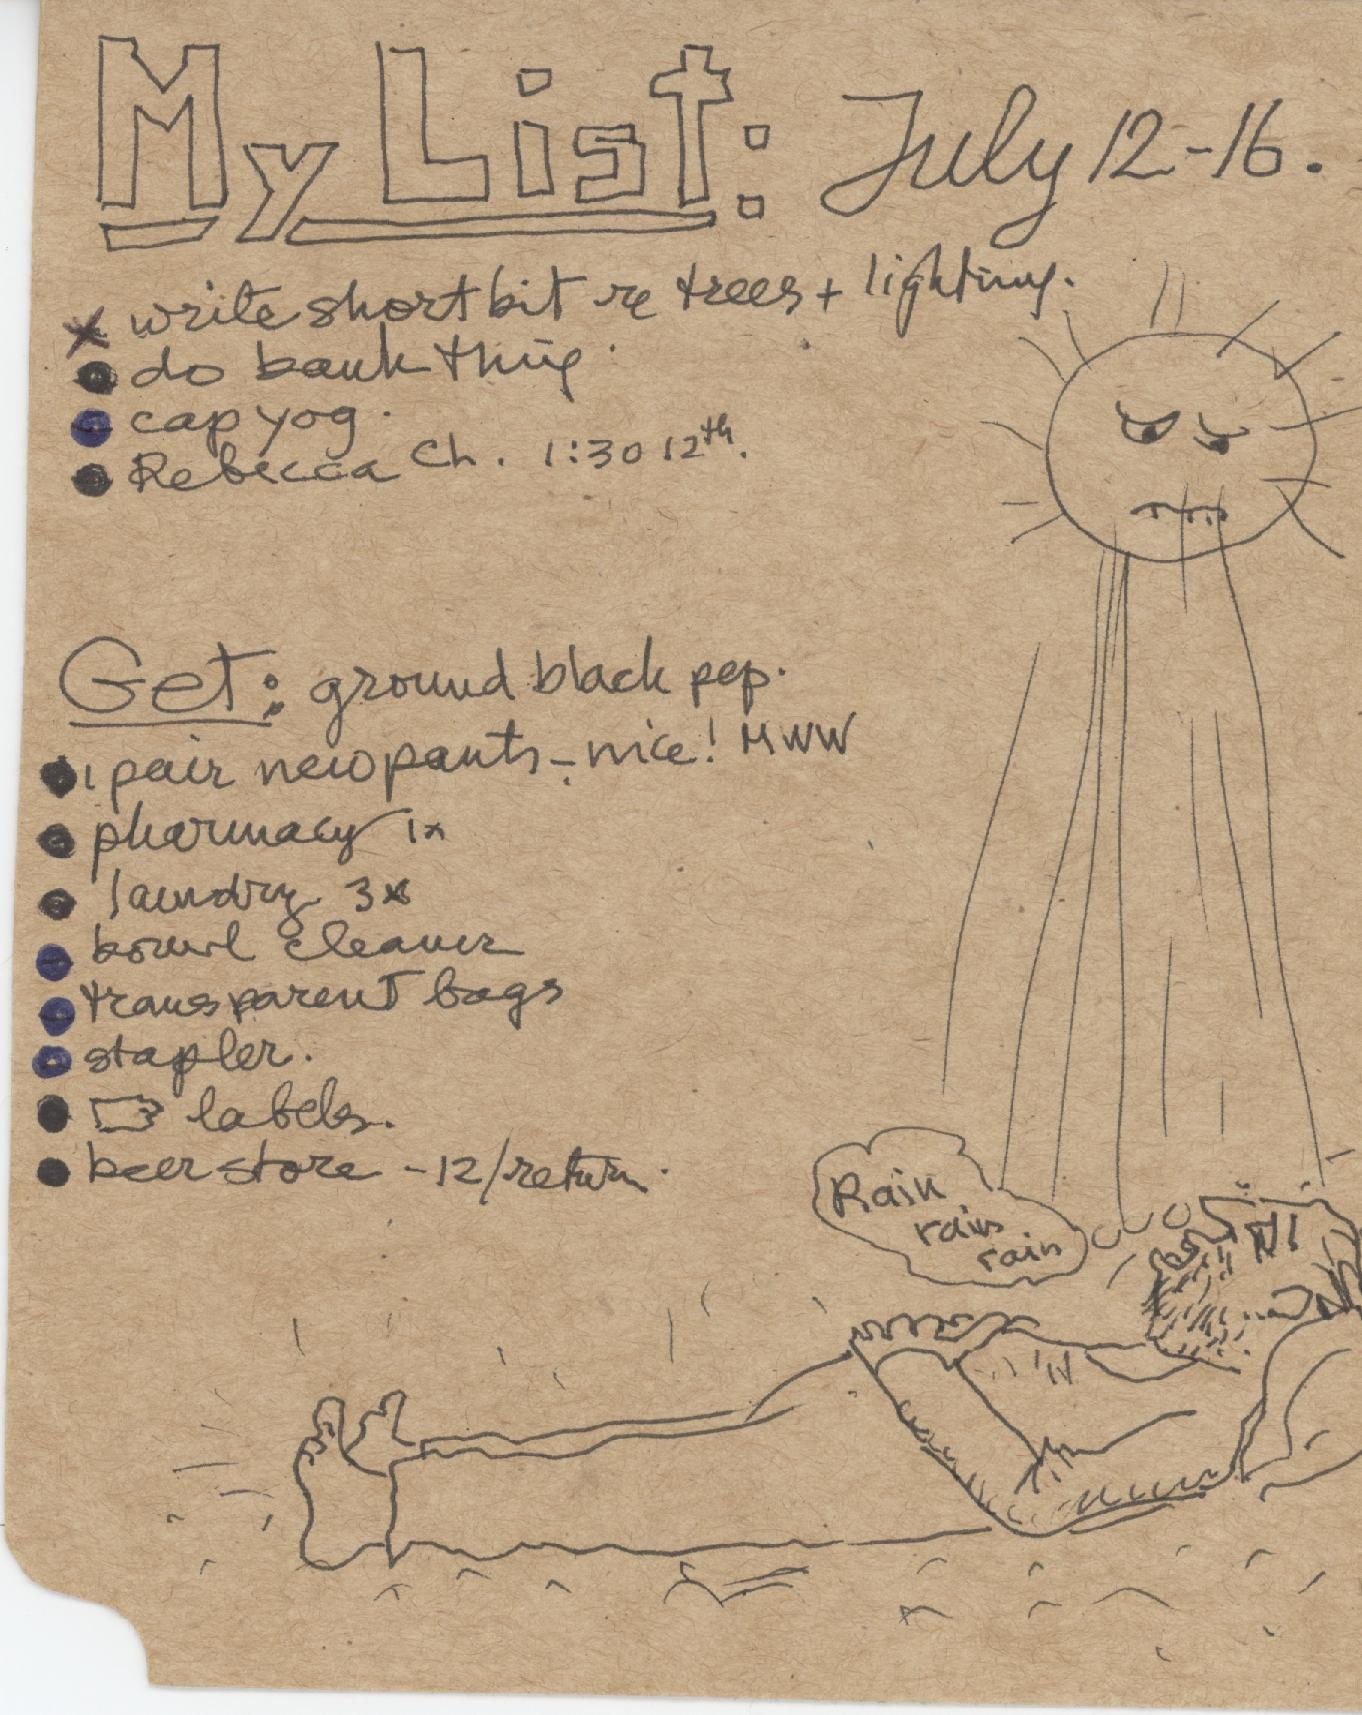 My List: July 12-16.
write short bit re trees + lighting.
do bank thing.
cap yog.
Rebecca Ch. 1:30 12th.
Get: ground black pep.
1 pair new pants - nice! MWW
pharmacy 1x
laundry 3x
bowl cleaner
transparent bags
stapler.
labels.
beer store - 12/return.
Rain
rain
rain